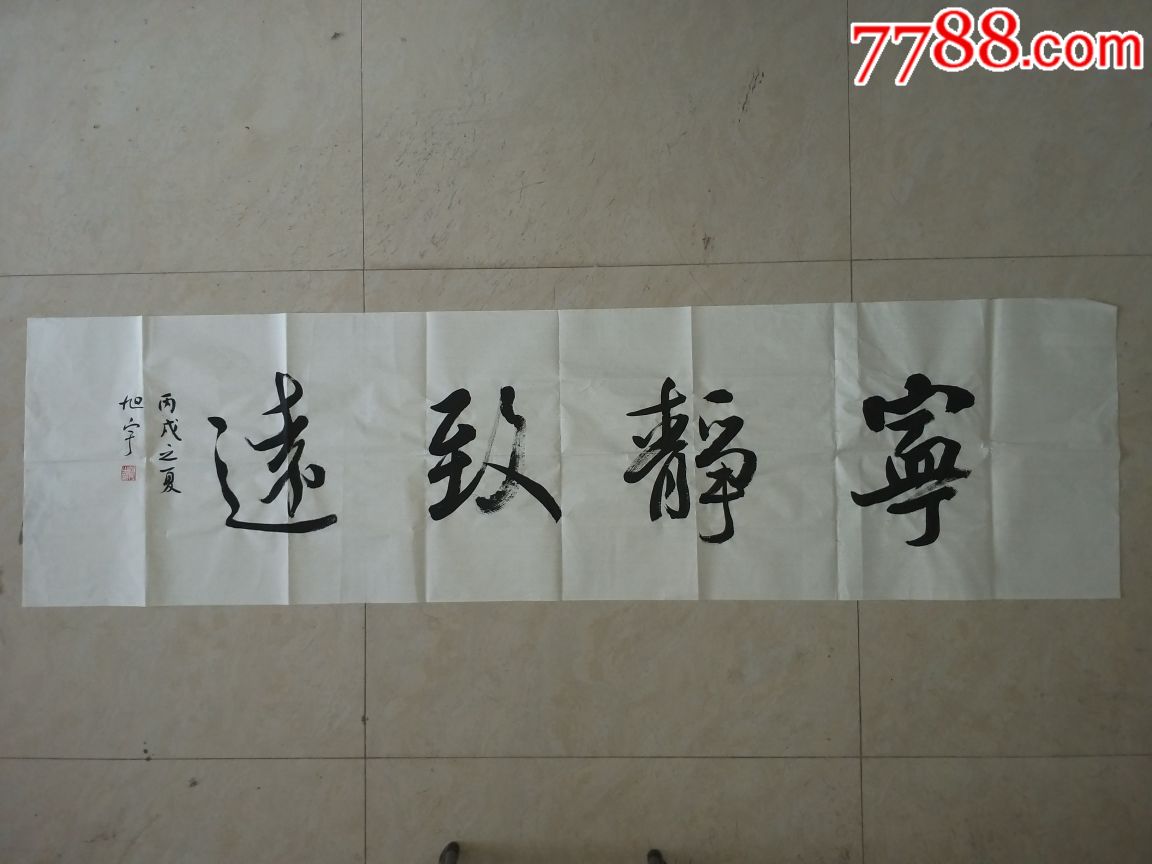 7788.com
寧靜致遠
丙戌之夏
旭宇